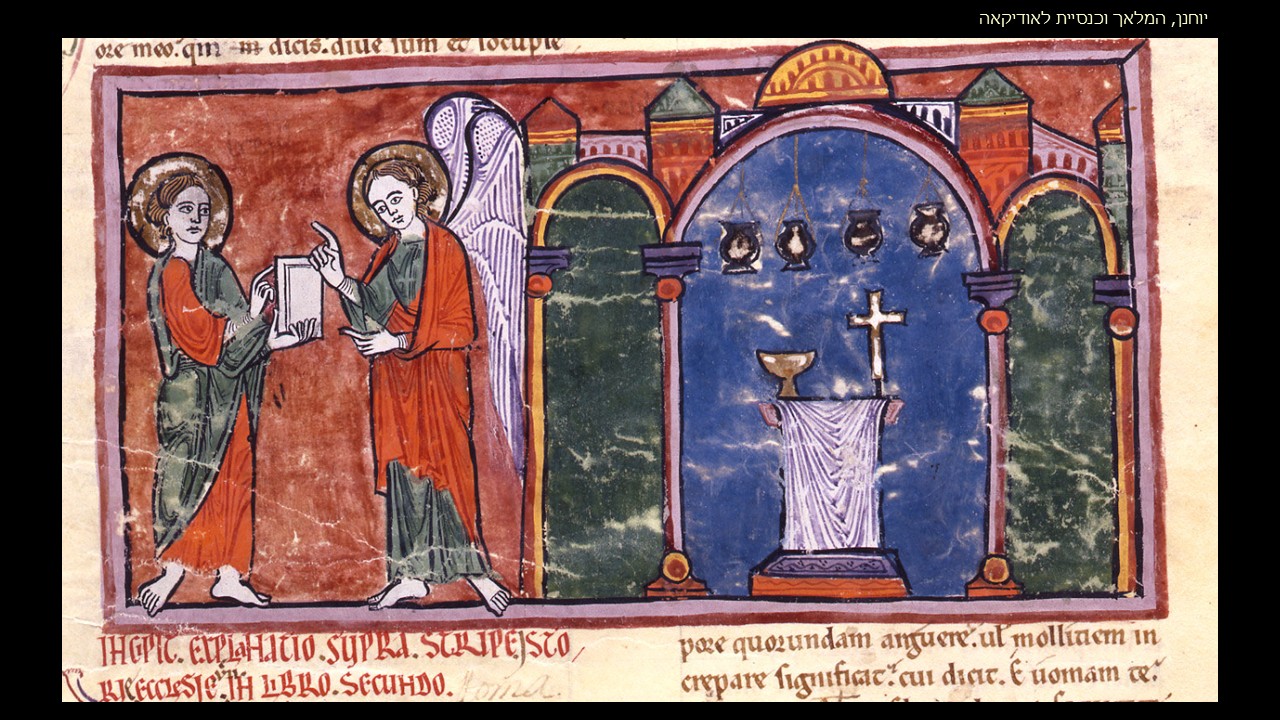 יוחנן, המלאך וכנסיית לאודיקאה
ore meo. qm dicis. dive sum et locuple
INCPIT. EXPLANATIO. SUPRA. STRIPEISTO
RI ECCLESIE. VII. IN LIBRO. SECUNDO.
pore quorundam anguere. ul mollitiem in
crepare significat. cui dicit. E uomam te.